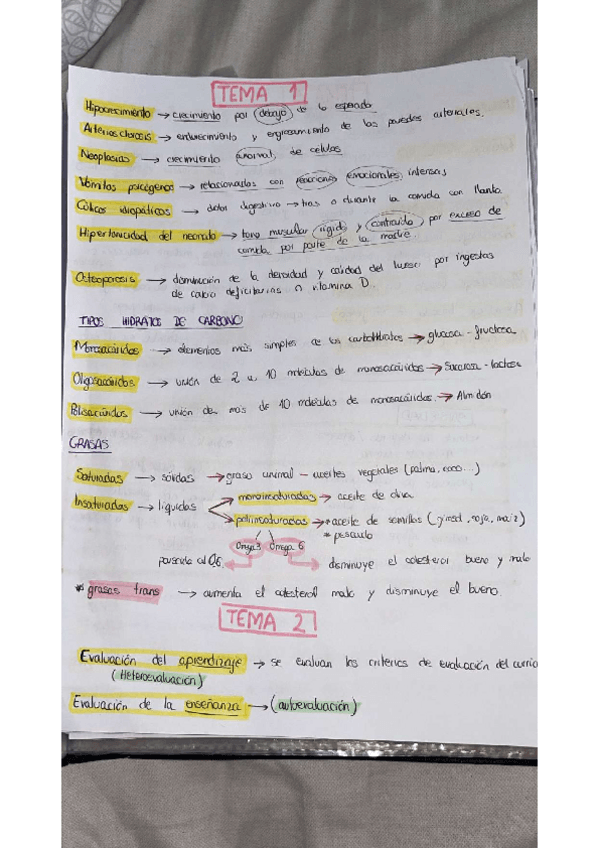 TEMA 1
Hipocrecimiento → crecimiento por debajo de lo esperado
Arteriosclerosis → endurecimiento y engrosamiento de las paredes arteriales.
Neoplasias → crecimiento anormal de células
Vómitos psicógenos → relacionados con reacciones emocionales intensas
Cólicos idiopáticos → dolor digestivo → tras o durante la comida con llanto.
Hipertonicidad del neonato → tono muscular rígido y contraído por exceso de
comida por parte de la madre.
Osteoporosis → disminución de la densidad y calidad del hueso por ingestas
de calcio deficitarias o vitamina D.
TIPOS HIDRATOS DE CARBONO
Monosacáridos → elementos más simples de los carbohidratos → glucosa - fructosa
Oligosacáridos → unión de 2 a 10 moléculas de monosacáridos → Sacarosa - lactosa
Polisacáridos → unión de más de 10 moléculas de monosacáridos. → Almidón
GRASAS
Saturadas → sólidas → grasa animal - aceites vegetales (palma, coco...)
Insaturadas → líquidas
monoinsaturadas → aceite de oliva
poliinsaturadas → * aceite de semillas (girasol, soja, maíz)
* pescado
Omega 3 Omega 6
parecido al O6 disminuye el colesterol bueno y malo
* grasas trans → aumenta el colesterol malo y disminuye el bueno.
TEMA 2
Evaluación del aprendizaje → se evaluan los criterios de evaluación del
(Heteroevaluación)
Evaluación de la enseñanza → (autoevaluación)